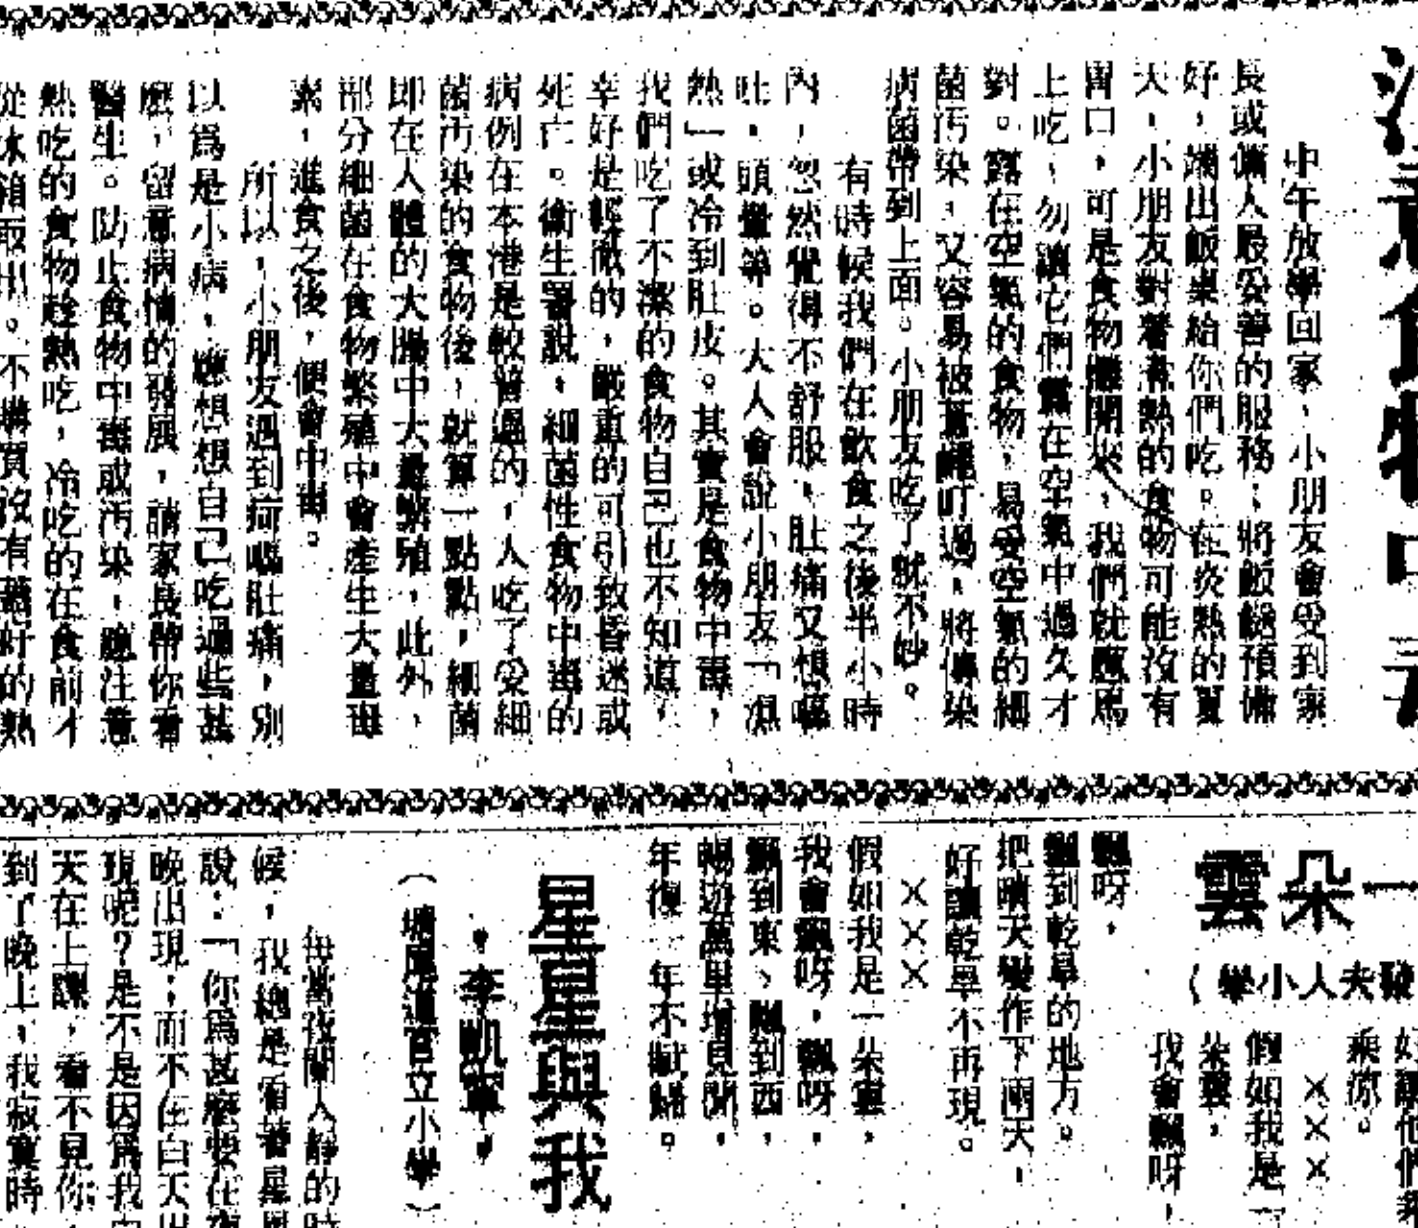 注意食物中毒
中午放學回家，小朋友會受到家
長或傭人最妥善的服務，將飯餸預備
好，端出飯桌給你們吃。在炎熱的夏
天，小朋友對着煮熱的食物可能沒有
胃口，可是食物攤開來，我們就應馬
上吃，勿讓它們露在空氣中過久才
對。露在空氣的食物，易受空氣的細
菌污染，又容易被蒼蠅叮過，將傳染
病菌帶到上面。小朋友吃了就不妙。
有時候我們在飲食之後半小時
內，忽然覺得不舒服，肚痛又想嘔
吐，頭暈等。大人會說小朋友「濕
熱」或冷到肚皮。其實是食物中毒，
我們吃了不潔的食物自己也不知道，
幸好是輕微的，嚴重的可引致昏迷或
死亡。衞生署說，細菌性食物中毒的
病例在本港是較普遍的，人吃了受細
菌污染的食物後，就算一點點，細菌
即在人體的大腸中大量繁殖，此外，
部分細菌在食物繁殖中會產生大量毒
素，進食之後，便會中毒。
所以，小朋友遇到疴嘔肚痛，別
以爲是小病，應想想自己吃過些甚
麽，留意病情的發展，請家長帶你看
醫生。防止食物中毒或污染，應注意
熱吃的食物趁熱吃，冷吃的在食前才
從冰箱取出。不購買沒有蓋好的熟
一朵雲
夫人小學（
乘凉。
×××
假如我是一
朵雲，
我會飄呀，
飄呀，
飄到乾旱的地方。
把晴天變作下雨天，
好讓乾旱不再現。
×××
假如我是一朵雲，
我會飄呀，飄呀，
飄到東、飄到西，
暢遊萬里增見聞，
年復一年不賦歸。
星星與我
李凱寧
（塘尾道官立小學）
每當夜闌人靜的時
候，我總是看着星星
說：「你爲甚麽要在夜
晚出現；而不在白天出
現呢？是不是因爲我白
天在上課，看不見你，
到了晚上，我寂寞時